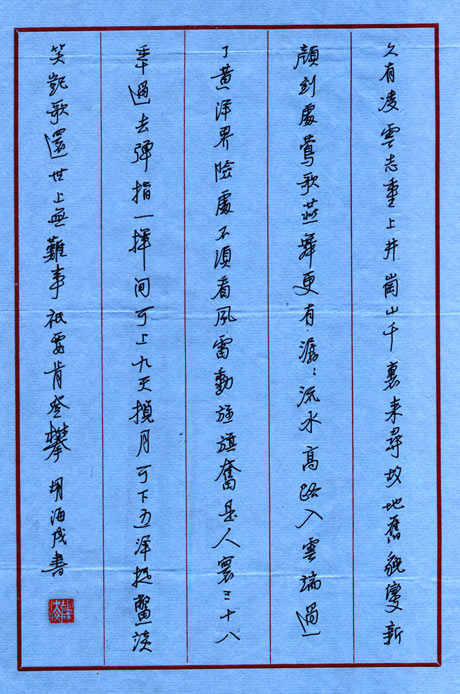 久有凌雲志重上井崗山千裏来尋故地舊貌變新
顔到處鶯歌燕舞更有潺:流水高路入雲端過
了黄洋界險處不須看風雷動旌旗奮是人寰三十八
年過去彈指一揮间可上九天攬月可下五洋捉鱉談
笑凱歌還世上無難事祇要肯登攀 胡海書